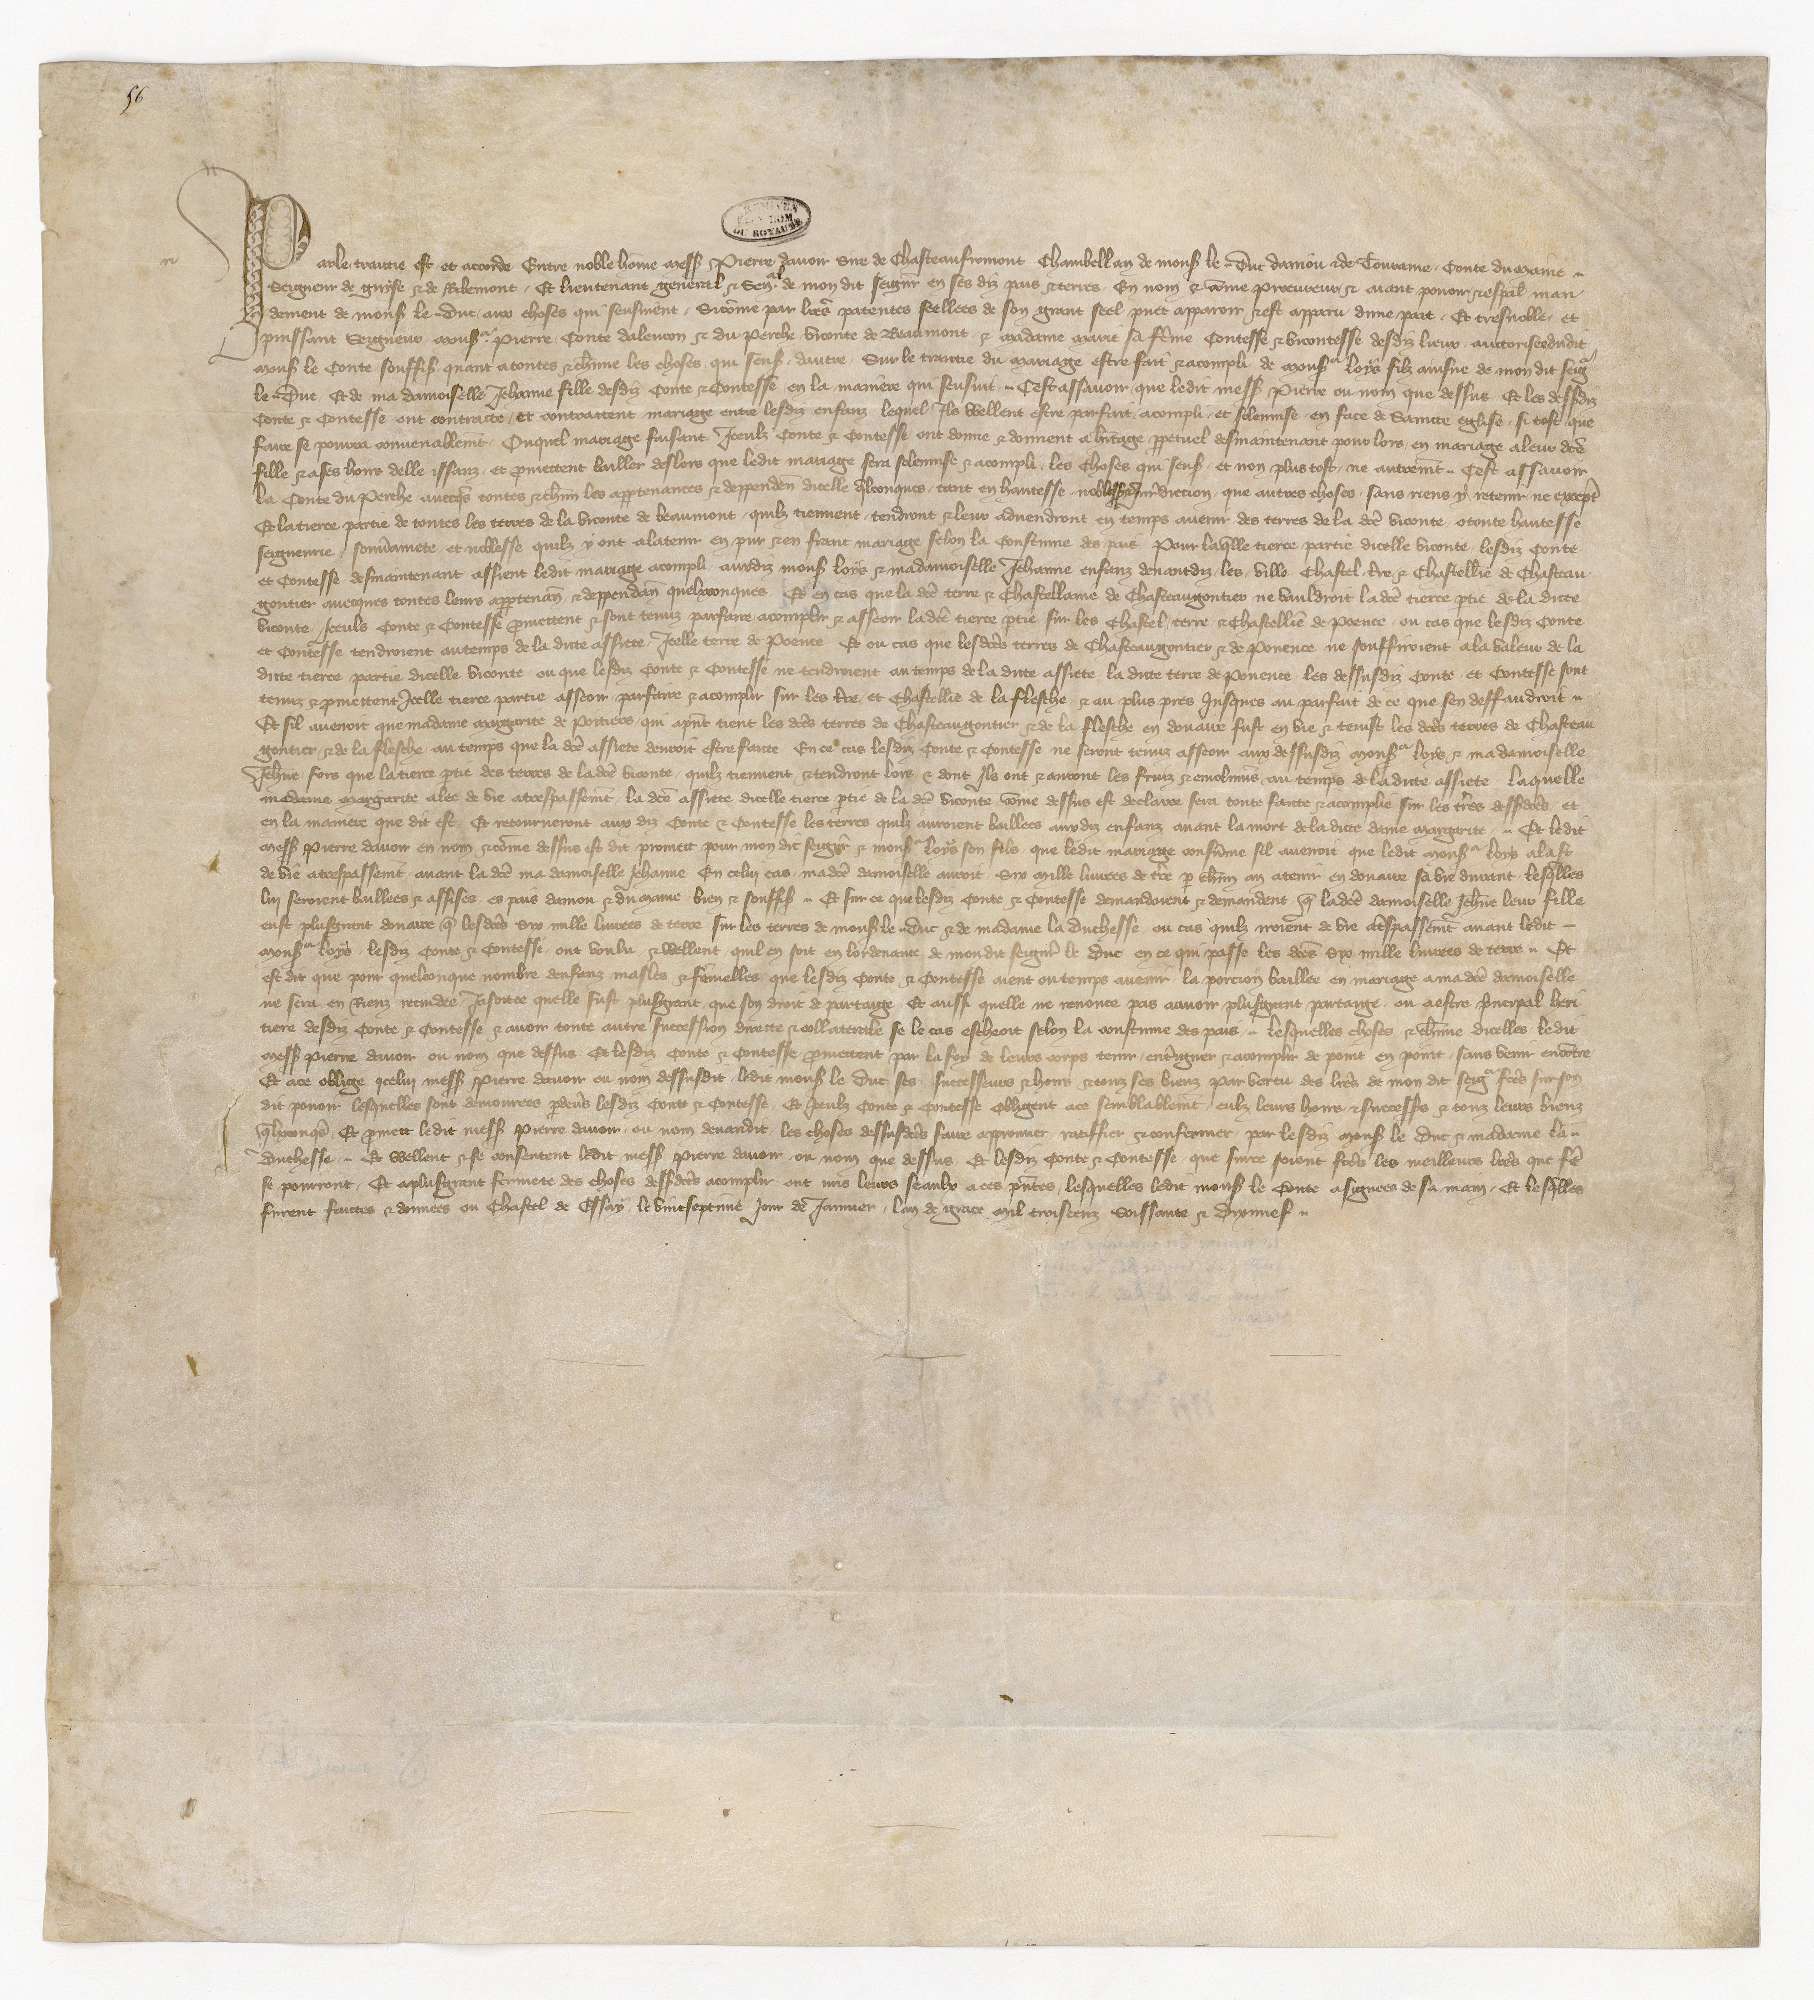 56
Parle traittie est et accorde Entre noble home mess Pierre davoir sire de Chasteaufremont Chambellan de mons le Duc daniou & de Touraine Conte du Maine
Seigneur de guyse & de Ribemont Et lieutenant general & Sen.al de mon dit seignr en ses diz pais & terres En nom & come procureur & aiant pouoir & espal man
dement de mons le Duc aux choses qui sensuient Sicome par lres patentes seellees de son grant seel puet apparoir & est apparu dune part Et tresnoble et
puissant Seigneur mons.r Pierre Conte dalencon & du Perche viconte de Beaumont & madame marie sa feme Contesse & vicontesse desdiz lieux auctorisee dudit
mons le Conte souffis quant atoutes & chune les choses qui sens dautre Sur le traittie du mariage estre fait & acompli de mons.r loys filz ainsne de mon dit seig.r
le Duc Et de ma damoiselle Jehanne fille desdiz Conte & Contesse en la maniere qui sensuit Cest assavoir que ledit mess Pierre ou nom que dessus Et les dessdiz
Conte & Contesse ont contracte et contractent mariage entre lesdiz enfanz lequel Ilz vellent estre parfait acompli et solemnise en face de Saincte eglise si tost que
faire se pourra convenablemt Ouquel mariage faisant Iceulz Conte & Contesse ont donne & donnent a hitage ppetuel desmaintenant pour lors en mariage a leur dce
fille & a ses hoirs delle issanz et promettent bailler deslors que ledit mariage sera solemnise & acompli les choses qui sens et non plus tost ne autremt Cest assavoir
la Conte du Perche avecqs toutes & chun les apptenances & deppenden dicelle qlconques tant en hautesse noblesse & iurisdiction que autres choses sans riens y retenir ne except
Et la tierce partie de toutes les terres de la viconte de beaumont quilz tiennent tendront & leur advendront en temps avenir des terres de la dce viconte o toute hautesse
seigneurie et noblesse quilz y ont a la tenir en pur & en franc mariage selon la coustume des pais Pour laqlle tierce partie dicelle viconte lesdiz Conte
et Contesse desmaintenant assient ledit mariage acompli auxdiz mons loys & madamoiselle Jehanne enfanz devantdiz les ville Chastel tre & Chastellie de Chasteau
gontier avecques toutes leurs apptenan & deppendan quelxconques Et en cas que la dce terre & Chastellanie de Chasteaugontier ne vauldroit la dce tierce ptie de la dicte
viconte Iceuls Conte & Contesse promettent & sont tenuz parfaire acomplir & asseoir la dce tierce ptie sur les Chastel terre & Chastellie de Poence ou cas que lesdiz Conte
et Contesse tendroient au temps de la dicte assiete Icelle terre de Poence Et ou cas que lesdces terres de Chasteaugontier & de Pouence ne souffiroient a la valeur de la
dicte tierce partie dicelle viconte ou que lesdiz Conte & Contesse ne tendroient au temps de la dicte assiete la dicte terre de Pouence les dessusdiz Conte et Contesse sont
tenuz & pmettent Icelle tierce partie asseoir parfaire & acomplir sur les tre et Chastellie de la flesche & au plus pres Jusques au parfait de ce que sen deffaudroit
Et sil avenoit que madame margarite de Poitiers qui apnt tient les dces terres de Chasteaugontier & de la flesche en douaire fust en vie & tenist les dces terres de Chasteau
gontier & de la flesche au temps que la dce assiete devroit estre faite En ce cas lesdiz Conte & Contesse ne seront tenuz asseoir aux dessusdiz mons.r loys & madamoiselle
Jehne fors que la tierce ptie des terres de la dce viconte quilz tiennent & tendront lors & dont Ilz ont & auront les fruiz & emolumens au temps de la dicte assiete laquelle
madame margarite alee de vie a trespassemt la dce assiete dicelle tierce ptie de la dce viconte come dessus est declaire sera toute faicte & acomplie sur les tres dessdces et
en la maniere que dit est Et retourneront aux diz Conte & Contesse les terres quilz auroient baillees auxdiz enfanz avant la mort de la dicte dame margarite Et ledit
mess Pierre davoir en nom & come dessus est dit promett pour mon dit seignr & mons.r loys son filz que ledit mariage consume sil avenoit que ledit mons.r loys alast
de vie a trespassemt avant la dce ma damoiselle Jehanne En celui cas madce damoiselle auroit Six mille livrees de tre p chun an a tenir en douaire sa vie durant lesqlles
lui seroient baillees & assises es pais daniou & du maine bien & souffis Et sur ce que lesdiz Conte & Contesse demandoient & demandent q la dce damoiselle Jehne leur fille
eust plus grant douaire q les dces Six mille livrees de terre sur les terres de mons le Duc & de madame la Duchesse ou cas quilz iroient de vie a trespassemt avant ledit
mons.r loys lesdiz Conte & Contesse ont voulu & vellent quil en soit en lordenance de mondit seignr le Duc en ce qui passe les dces Six mille livrees de terre Et
est dit que pour quelconque nombre denfanz masles & femelles que lesdiz Conte & Contesse aient ou temps avenir la porcion baillee en mariage a madce damoiselle
ne sera en Riens recindee Jasoitce quelle fust plus grant que son droit de partaige Et aussi quelle ne renonce pas a avoir plus grant partaige ou a estre principal heri
tiere desdiz Conte & Contesse & avoir toute autre succession directe & collaterale se le cas escheoit selon la coustume des pais lesquelles choses & chune dicelles ledit
mess Pierre davoir ou nom que dessus Et lesdiz Conte & Contesse promettent par la foy de leurs corps tenir enteriner & acomplir de point en point sans venir encontre
Et a ce oblige icelui mess Pierre davoir ou nom dessusdit ledit mons le Duc ses successeurs & hoirs & touz ses bienz par vertu des lres de mon dit seig.r fces sur son
dit pouoir lesquelles sont demourees pdevs lesdiz Conte & Contesse Et Iceulz Conte & Contesse obligent a ce semblablemt eulz leurs hoirs & successs & touz leurs bienz
qlxconqs Et promett ledit mess Pierre davoir ou nom devandit les choses dessusdces faire approuver ratiffier & confermer par lesdiz mons le Duc & madame la
Duchesse Et vellent & se consentent ledit mess Pierre davoir ou nom que dessus Et lesdiz Conte & Contesse que sur ce soient fces les meilleurs lres que fe
se pourront Et a plus grant fermete des choses dessdces acomplir ont mis leurs seaulx a ces pntes lesquelles ledit mons le Conte a signees de sa main Et lesqlles
furent faictes & donnees ou Chastel de Essay le vintseptime Jour de Janvier lan de grace mil troiscenz Soissante & Dixnuef